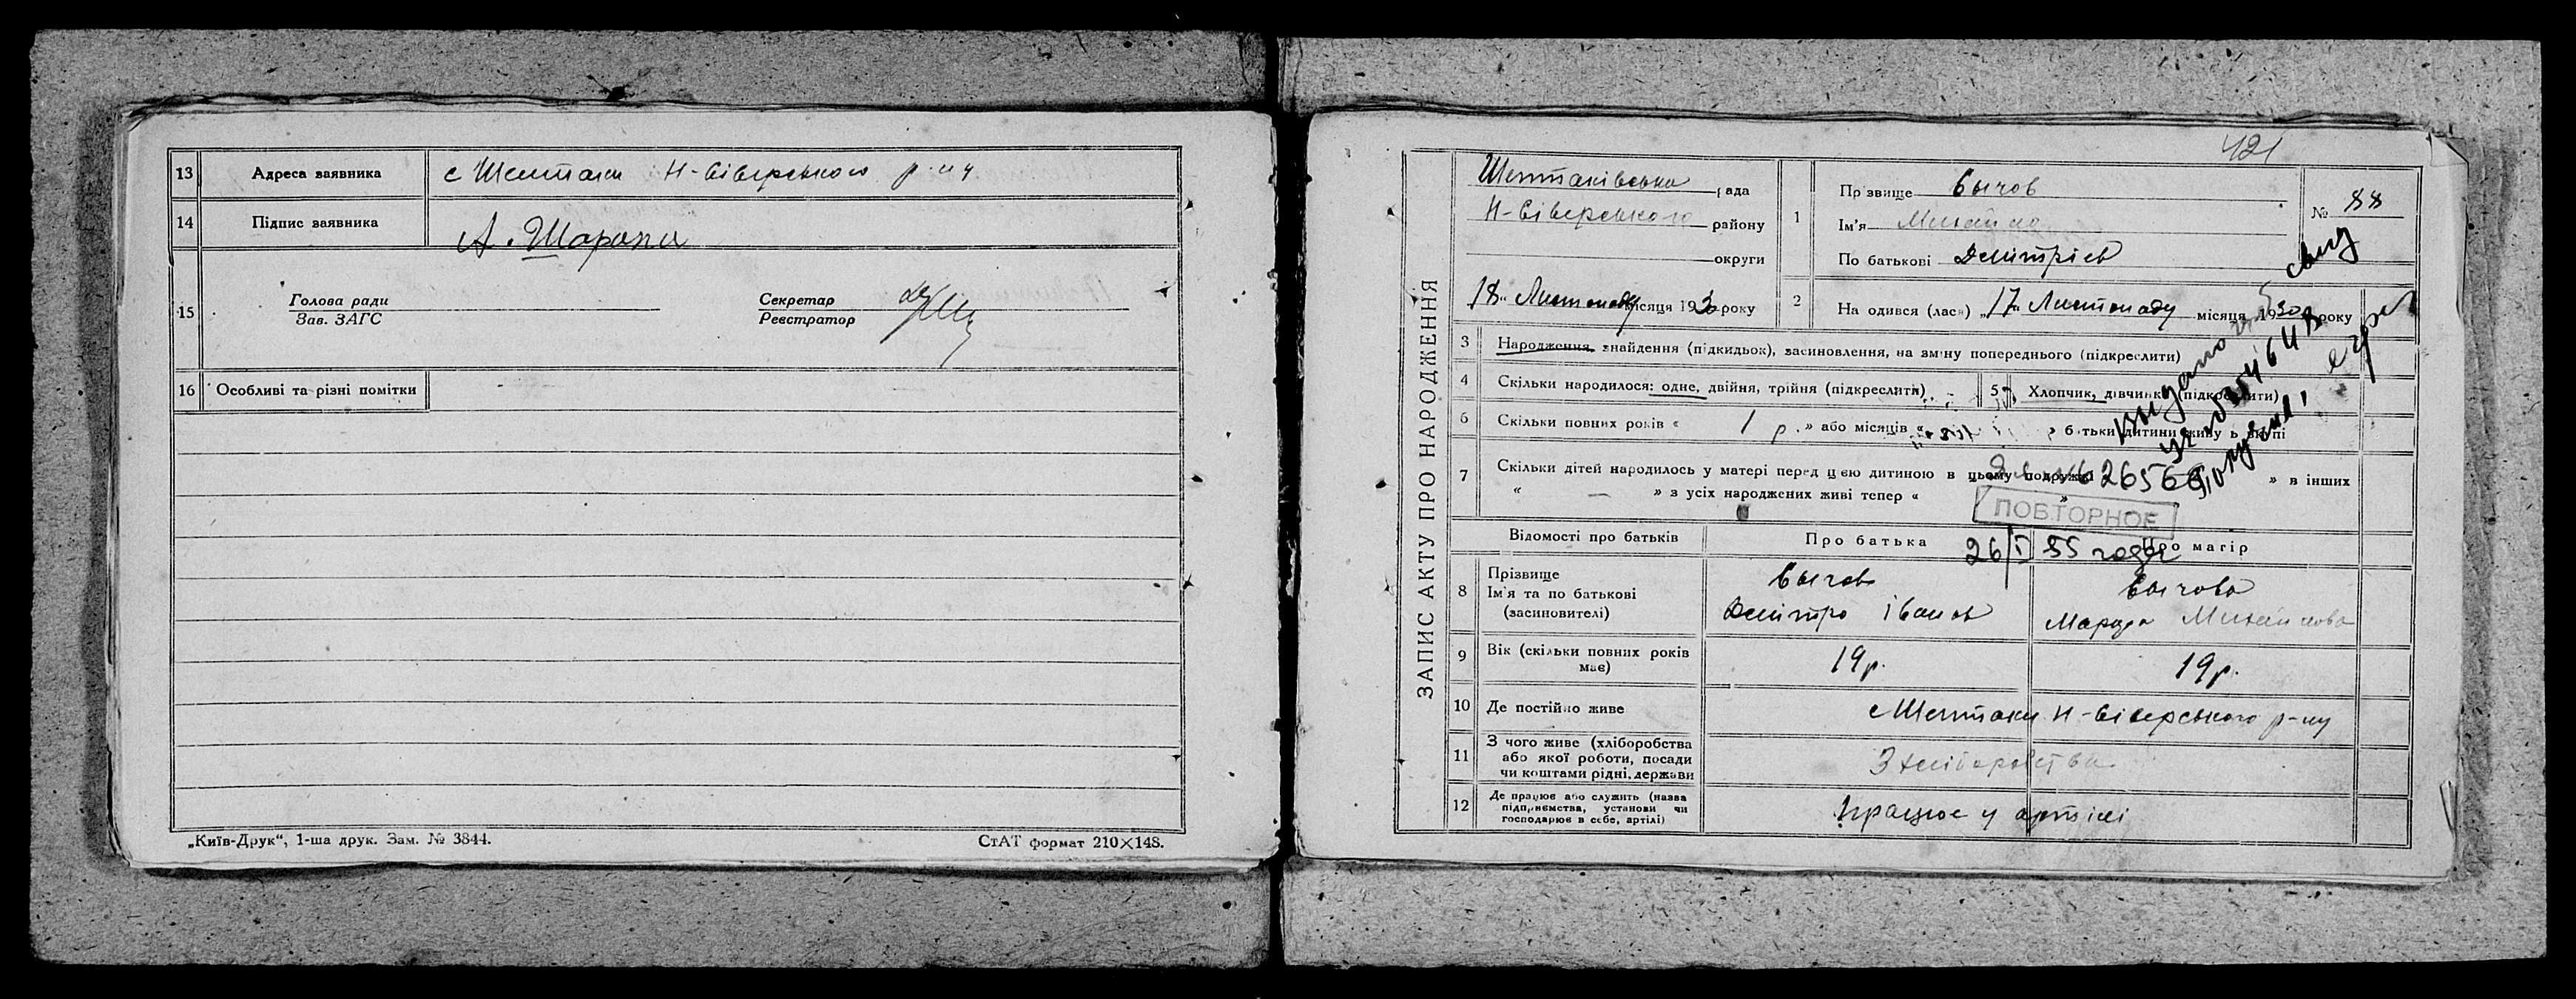 13 Адреса заявника с Шептаки Н-Сіверського р-ну
14 Підпис заявника А. Шарапа
15 Голова ради
Зав. ЗАГС
Секретар
Реєстратор
16 Особливі та різні помітки
„Київ-Друк“, 1-ша друк. Зам. № 3844.
СтАТ формат 210×148.
421
ЗАПИС АКТУ ПРО НАРОДЖЕННЯ
Шептаківська рада
Н-Сіверського району
округи
18 „ Листопаду місяця 193 року
1 Прізвище Сычов
Ім'я Михайло
По батькові Дмітрієв
№ 88
2 На одився (лася) „17“ Листопаду місяця 1930 року
3 Народження, знайдення (підкидьок), засиновлення, на зміну попереднього (підкреслити)
4 Скільки народилося: одне, двійня, трійня (підкреслити)
5 Хлопчик, дівчинка (підкреслити)
6 Скільки повних років « 1 р. » або місяців « » батьки дитини живуть вкупі
7 Скільки дітей народилось у матері перед цією дитиною в цьому подружжі » в інших
« — » з усіх народжених живі тепер « »
видано
свид
ПОВТОРНОЕ
26/I 55 года
Відомості про батьків
Про батька
Про матір
8 Прізвище
Ім'я та по батькові
(засиновителі)
Сычов
Дмітро Іванов
Сычова
Марфа Михайлова
9 Вік (скільки повних років
має)
19 р.
19 р.
10 Де постійно живе с Шептаки Н-Сіверського р-ну
11 З чого живе (хліборобства
або якої роботи, посади
чи коштами рідні, держави
З хліборобства
12 Де працює або служить (назва
підприємства, установи чи
господарює в себе, артілі)
Працює у артілі